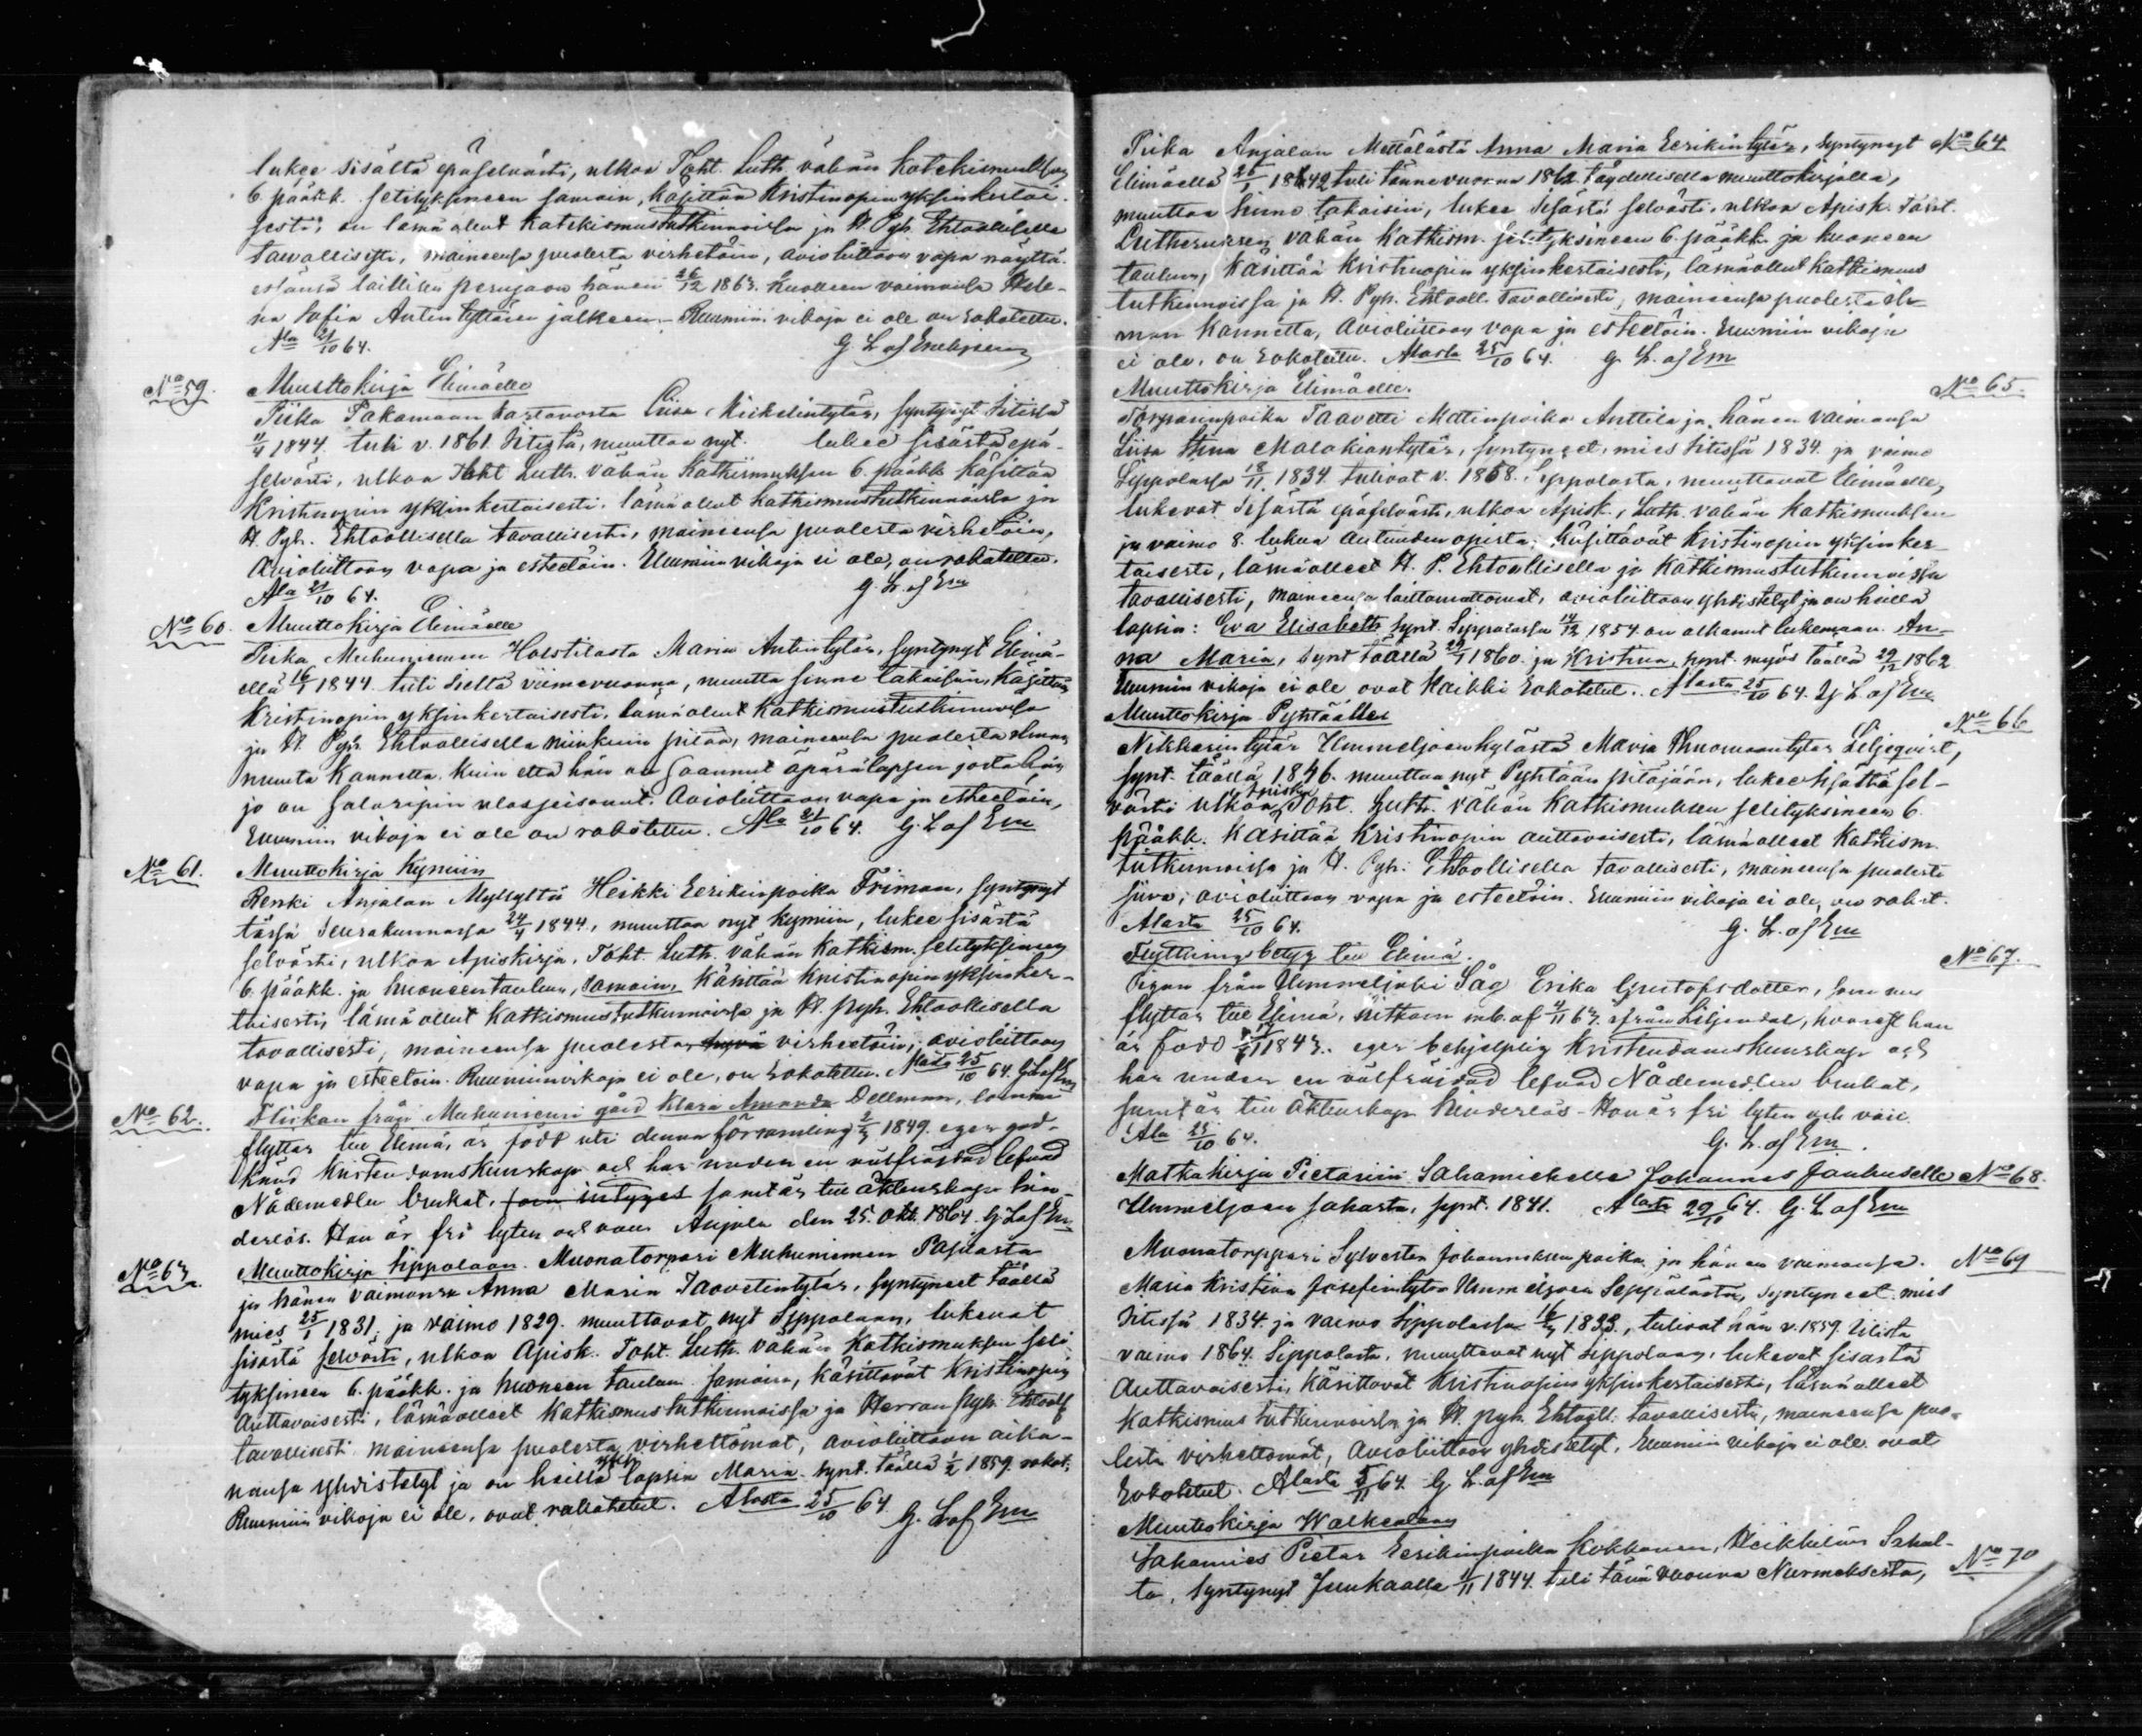 lukee sisältä epäselvästi, ulkoa Toht. Luth. vähän Katekismuksen
6 pääkk. selityksineen samoin, käsittää Kristinopin yksinkertai-
sesti, on läsnä ollut Katekismustutkinnoissa ja H. Pyh. Ehtoollisella
tavallisesti, maineensa puolesta virhetöin, avioliittoon vapa näyttä-
laillisen perujaon hänen 26/12 1863. kuolleen vaimonsa Hele-
na Sofia Antintyttären jälkeen. - Ruumiin vikoja ei ole on rokotettu.
Ala 21/10 64. G. L. af
No 59. Muuttokirja Elimäelle
Piika Takamaan kartanosta Liisa Mikelintytär, syntynyt Iitissä
1844 tuli v. 1861 Iitistä, muuttaa nyt. lukee sisästä epä-
selvästi, ulkoa Toht Luth. vähän Katkismuksen 6. pääkk käsittää
Kristinopin yksinkertaisesti. läsnä ollut katkismustutkinnoissa ja
H. Pyh. Ehtoollisella tavallisesti, maineensa puolesta virhetöin,
Avioliittoon vapa ja esteetöin. Ruumiin vikoja ei ole, on rokotettu.
Ala 21/10 64. G. L. af Em
No 60. Muuttokirja Elimäelle
Piika Muhuniemen Holstilasta Maria Antintytär, syntynyt Elimä-
ellä 16/1 1844 tuli sieltä viimevuonna, muutta sinne takaisin, käsittää
Kristinopin yksinkertaisesti. läsnä ollut Katkismustutkinnoissa
ja H. Pyh. Ehtoollisella niinkuin pitää, maineensa puolesta ilman
muuta kannetta. kuin että hän on saannut äpärälapsen josta hän
jo on salaripin ulosseisonut. Avioliittoon vapa ja esteetöin,
Ruumiin vikoja ei ole on rokotettu. Ala 21/10 64. G. L. af Em
No 61. Muuttokirja Kymiin
Renki Anjalan Myllyltä Heikki Eerikinpoika Friman, syntynyt
tässä Seurakunnassa 24/4 1844, muuttaa nyt Kymiin, lukee sisästä
selvästi, ulkoa Apiskirja, Toht. Luth. vähän Katkism. selityksineen
6. pääkk. ja huoneentaulun, samoin, käsittää kristinopin yksinker-
taisesti, läsnä ollut Katkismustutkinnoissa ja H. Pyh. Ehtoollisella
tavallisesti, maineensa puolesta hyvä virheetöin, avioliittoon
vapa ja esteetöin. Ruumiinvikoja ei ole, on rokotettu. Alasta 25/10 64. G. L. af Em
No 62. Flickan från Muhuniemi gård Klara Amanda Dellman,
flyttar till Elimä, är född uti denna församling 1849. eger god-
känd kristendomskunskap och har under en välfräjdad lefnad
Nådemedlen brukat. som intyges samt är till äktenskap hin-
derlös. Hon är fri lyten och Anjala den 25. Okt. 1864. G. L. af Em
No 63. Muuttokirja Sippolaan. Muonatorpari Muhuniemen Pasilasta
ja hänen vaimonsa Anna Maria Taavetintytär, syntyneet täällä
mies 25/1 1831. ja vaimo 1829. muuttavat nyt Sippolaan, lukevat
sisästä selvästi, ulkoa Apisk. Toht. Luth. vähän Katkismuksen seli-
tyksineen 6. pääkk. ja huoneen taulun samoin, käsittävät Kristinopin
Auttavaisesti, läsnäolleet Katkismustutkinnoissa ja Herran Pyh. Ehtooll
tavallisesti maineensa puolesta virhettömät, avioliittoon aika-
nansa yhdistetyt ja on heillä yksi lapsin Maria synt. täällä 1/2 1859. rokot.
Ruumiin vikoja ei ole, ovat rokotetut. Alasta 25/10 64 G. L. af Em
Piika Anjalan Mettälästä Anna Maria Eerikintytär, syntynyt No 64
Elimäellä 1842 tuli tänne vuonna 1862 täydellisellä muuttokirjalla,
muuttaa sinne takaisin, lukee sisästä selvästi, ulkoa Apisk. Toht.
Lutheruksen vähän Katkism. selityksineen 6. pääkk. ja huoneen
taulun, käsittää Kristinopin yksinkertaisesti, läsnäollut Katkismus
tutkinnoissa ja H. Pyh. Ehtooll. tavallisesti, maineensa puolesta il-
man kannetta, Avioliittoon vapa ja esteetöin. Ruumiin vikoja
ei ole, on rokotettu. Alasta 25/10 64. G. L. af Em
Muuttokirja Elimäelle. No 65.
Torpanpoika Taavetti Matinpoika Anttila ja hänen vaimonsa
Liisa Malakiantytär, syntyneet, mies Iitissä 1834 ja vaimo
Sippolassa 18/11 1834 tulivat v. 1858. Sippolasta, muuttavat Elimäelle,
lukevat sisästä epäselvästi, ulkoa Apisk., Luth. vähän Katkismuksen
ja vaimo 8. lukua autuuden opista, käsittävät Kristinopin yksinker-
taisesti, läsnäolleet H. P. Ehtoollisella ja Katkismustutkinnoissa
tavallisesti, maineensa laittamattomat, avioliittoon yhdistetyt ja on heillä
lapsia: Eva Elisabeth synt. Sippolassa 14/12 1854 on alkanut lukemaan. An-
na Maria, synt täällä 1860. ja Kristina, synt. myös täällä 29/12 1862
Ruumiin vikoja ei ole ovat kaikki rokotetut. Alasta 25/10 64. G. L. af Em
Muuttokirja Pyhtäälle No 66
Nikkarintytär Ummeljoenkylästä Maria Thuomaantytär Liljeqvist,
synt. täällä 1846. muuttaa nyt Pyhtään pitäjään, lukee sisästä sel-
västi ulkoa Apisk Toht. Luth. vähän Katkismuksen selityksineen 6.
pääkk. käsittää Kristinopin auttavaisesti, läsnäolleet Katkism.
tutkinnoissa ja H. Pyh. Ehtoollisella tavallisesti, maineensa puolesta
siivo, avioliittoon vapa ja esteetöin. Ruumiin vikoja ei ole, on rokot.
Alasta 25/10 64. G. L. af Em
Flyttningsbetyg till Elimä. No 67.
Pigan från Ummeljoki Såg Erika Gustafsdotter, som nu
flyttar till Elimä, hitkom m. b. af 4/11 63. från Liljendal, hvarest hon
är född 1843. eger behjelplig Kristendomskunskap och
har under en välfräjdad lefnad Nådemedlen brukat,
samt är till äktenskap hinderlös. Hon är fri lyten och
Ala 25/10 64. G. L. af Em.
Matkakirja Pietariin Sahamiehelle Johannes Jauhuselle No 68.
Ummeljoen Sahasta, synt. 1841. Alasta 29/10 64. G. L. af Em
Muonatorppari Sylvester Johanneksenpoika ja hänen vaimonsa No 69
Maria Kristina Josefintytär Ummeljoen Seppälästä, syntyneet mies
Iitissä 1834. ja vaimo Sippolassa 1833, tulivat hän v. 1859. Iitistä
vaimo 1864. Sippolasta, muuttavat nyt Sippolaan, lukevat sisästä
Auttavaisesti, käsittävät Kristinopin yksinkertaisesti, läsnäolleet
Katkismus tutkinnoissa ja H. Pyh. Ehtooll. tavallisesti, maineensa puo-
lesta virhettömät, Avioliittoon yhdistetyt, Ruumiin vikoja ei ole. ovat
Rokotetut. Alasta 5/11 64. G. L. af Em
Muuttokirja Walkealaan
Sahamies Pietar Eerikinpoika Kokkonen, Heikkilän Sahal-
ta, Syntynyt Juukaalla 1844. tuli tänä vuonna Nurmeksesta, No 70